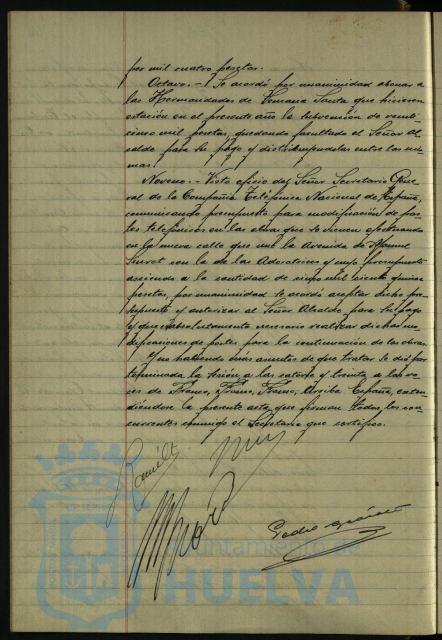 por mil cuatro pesetas.
Octavo.- Se acordó por unanimidad abonar a
las Hermandades de Semana Santa que hicieron
estación en el presente año la subvención de veinti-
cinco mil pesetas, quedando facultado el Señor Al-
calde para su pago y distribuyendolas entre las mis-
mas.
Noveno.- Visto oficio del Señor Secretario Gene-
ral de la Compañia Telefónica Nacional de España,
comunicando presupuesto para modificación de pos-
tes telefónicos en las obras que se vienen efectuando
en la nueva calle que une la Avenida de Manuel
Siurot con la de las Adoratrices y cuyo presupuesto
asciende a la cantidad de cinco mil ciento quince
pesetas, por unanimidad se acordó aceptar dicho pre-
supuesto y autorizar al Señor Alcalde para su pago
y que absolutamente necesario realizar dichas mo-
dificaciones de postes para la continuación de las obras.
Y no habiendo más asuntos de que tratar se dió por
terminada la sesión a las catorce y treinta a las vo-
ces de Franco, Franco, Franco, Arriba España, exten-
diéndose la presente acta que firman todos los con-
currentes conmigo el Secretario que certifico.
Pedro
Ayuntamiento de
HUELVA